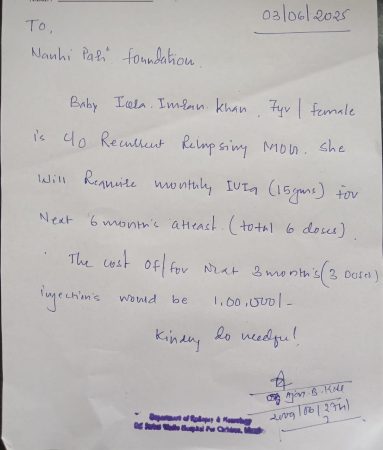 03/06/2025
To,
Nanhi Pari foundation.
Baby Imran Khan, 7yr / female
is c/o Recurrent Relapsing MOG. She
will Require monthly IVIg (15gms) for
Next 6 months atleast. (total 6 doses).
The cost of/for Next 3 months (3 Doses)
injections would be 1,00,000/-
Kindly do needful!
2009/06/2741
Department of Epilepsy & Neurology
B.J. Wadia Hospital For Children,